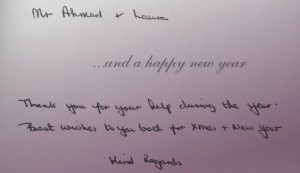 Mr Ahmad + Laura
...and a happy new year
Thank you for your help during the year.
Best wishes to you both for Xmas + New year
Kind Regards